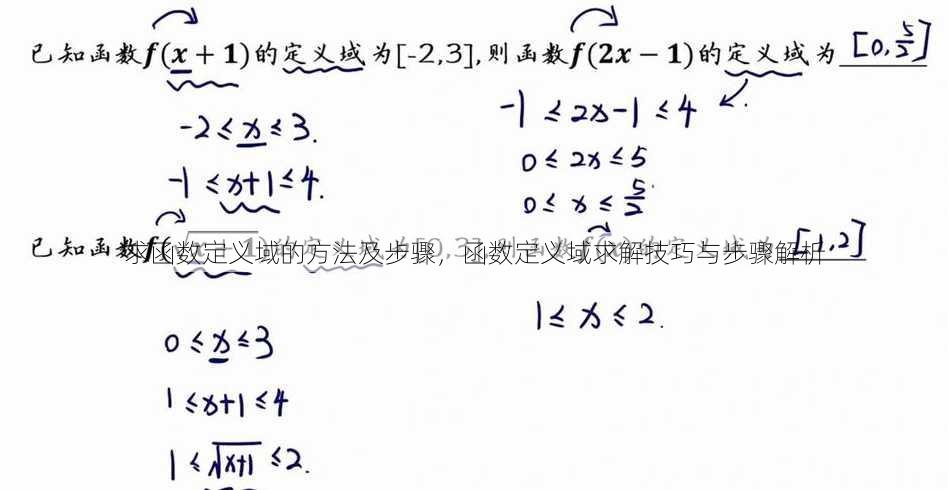 已知函数f(x + 1)的定义域为[-2,3],则函数f(2x − 1)的定义域为 [0,5/2]
-2≤x≤3.
-1≤x+1≤4.
-1≤2x-1≤4
0≤2x≤5
0≤x≤5/2
已知函数f(√x+1)的定义域为[0,3],则函数f(x)的定义域为 [1,2]
求函数定义域的方法及步骤，函数定义域求解技巧与步骤解析
0≤x≤3
1≤x+1≤4
1≤√x+1≤2.
1≤x≤2.